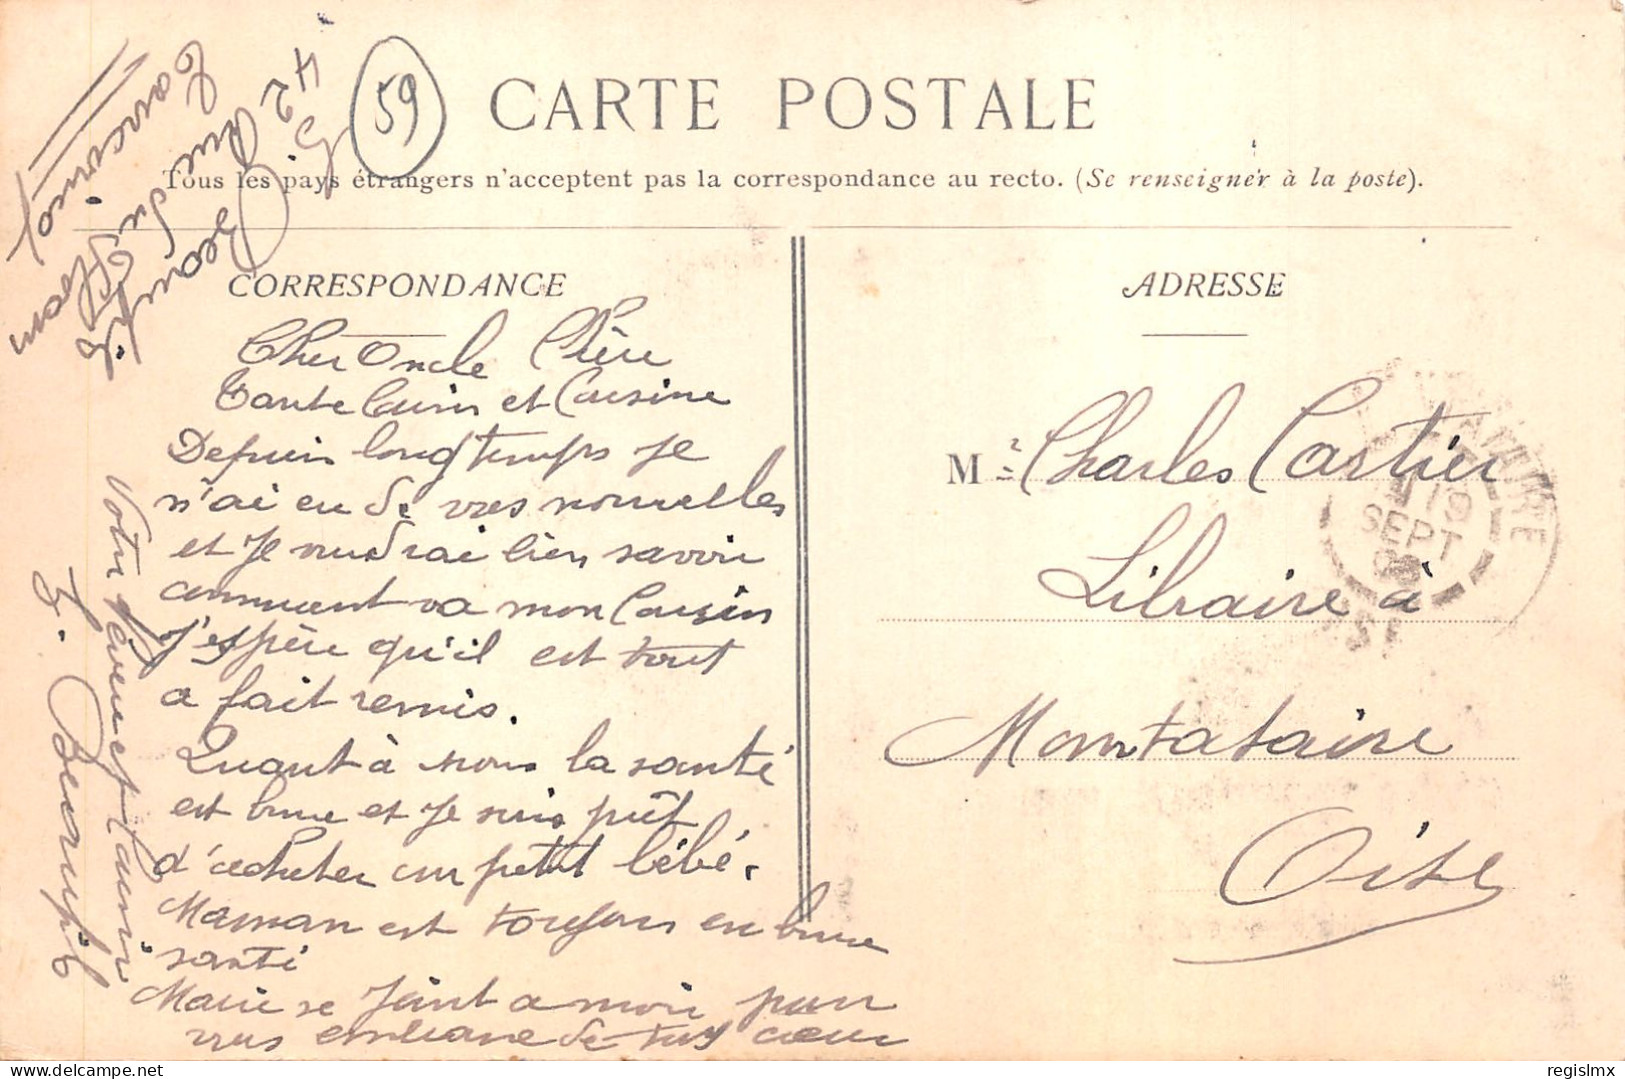 59
CARTE POSTALE
Tous les pays étrangers n'acceptent pas la correspondance au recto. (Se renseigner à la poste).
CORRESPONDANCE
Cher Oncle Chère
Tante Cousin et Cousine
Depuis longtemps je
n'ai eu de vos nouvelles
et je voudrai bien savoir
comment va mon Cousin
j'espère qu'il est tout
a fait remis.
Quant à nous la santé
est bonne et je suis prêt
d'acheter un petit bébé.
Maman est toujours en bonne
santé
Marie se joint a moi pour
vous embrasse de tous cœur
Votre Neveu et Cousin
Beaupil
42 Rue du
Tourcoing
ADRESSE
Mr Charles Cartier
Libraire à
Montataire
Oise
19
SEPT
regislmx